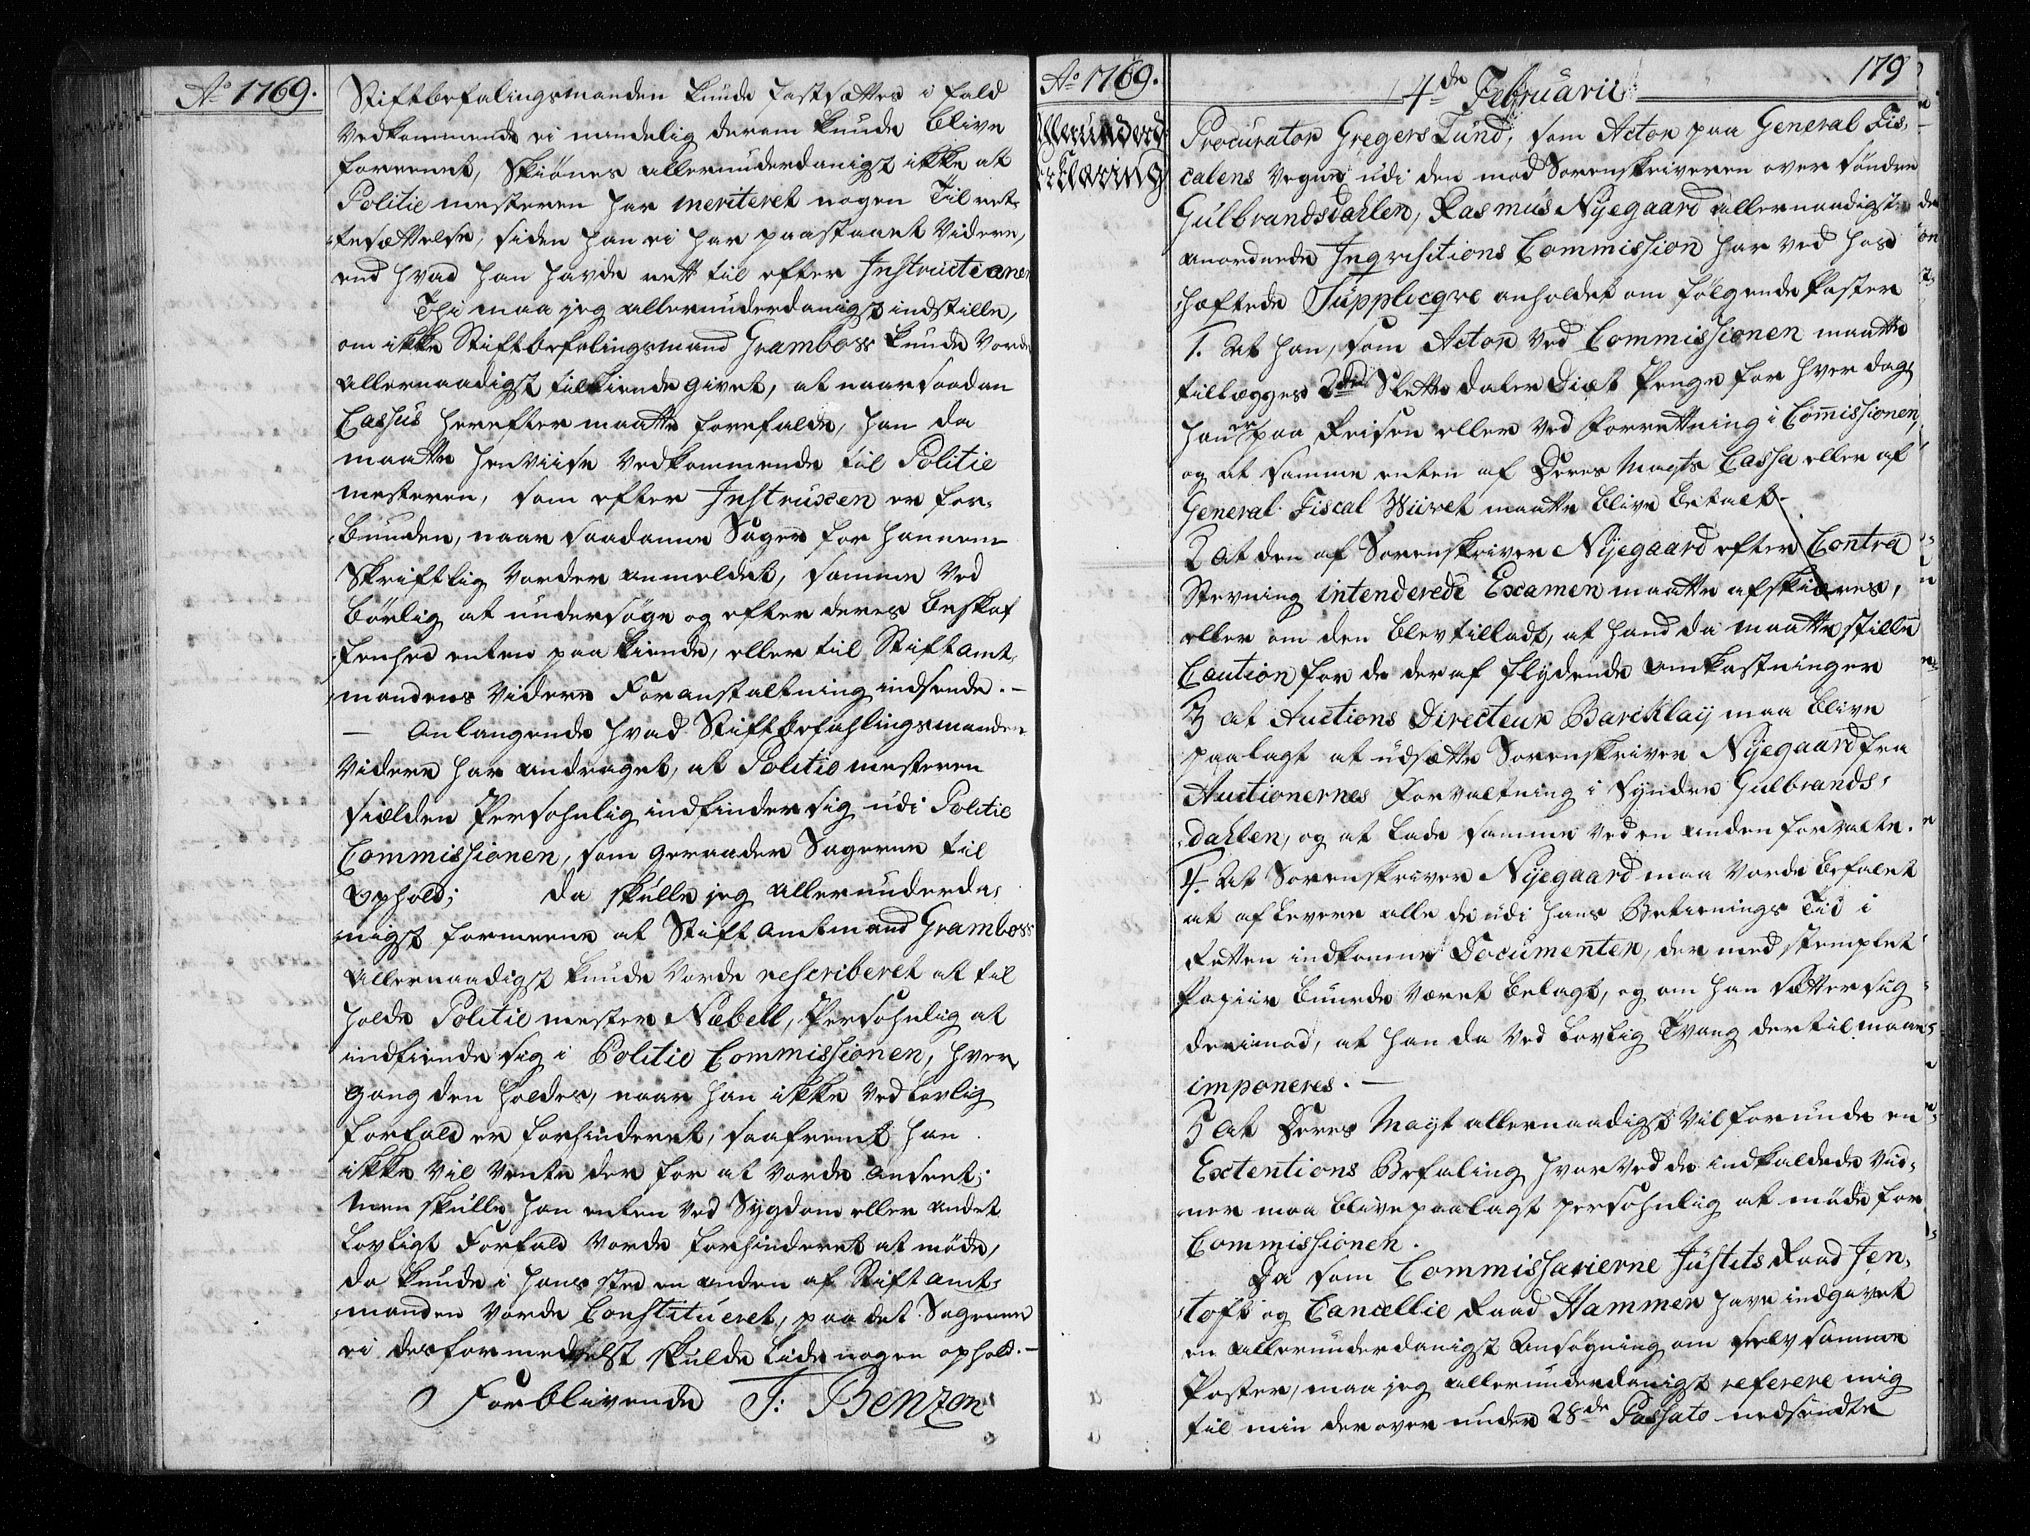 Ao 1769.
Stiftbefalingsmanden kunde fastsættes i fald
Vedkommende ei mindelig derom kunde blive
foreenet, Skiønnes allerunderdanigst ikke at
Politie mesteren har meriteret nogen Til ret-
tesættelse, siden han ei har paastaaet videre,
end hvad han havde rett til efter Instructionen
Thi maa jeg allerunderdanigst indstille,
om ikke Stiftbefalingsmand Gramboss kunde Vorde
allernaadigst tilkiende givet, at naar saadan
Cassus herefter maatte forefalde, han da
maatte henviise Vedkommende til Politie
mesteren, som efter Instruxen er for-
bunden, naar saadanne Sager for hannem
Skriftlig Vorder anmeldet, samme Ved
børlig at undersøge og efter deres beskaf
fenhed enten paa kiende, eller til Stiftamt
mandens Videre Foranstaltning indsende. -
- Anlangende hvad Stiftbefahlingsmanden
Videre har andraget, at Politie mesteren
siælden Persohnlig indfinder sig udi Politie
Commissionen, som geraader Sagerne til
Ophold; da skulle jeg allerunderda-
nigst formeene at Stiftamtmand Gramboss
allernaadigst kunde Vorde rescriberet at til
holde Politie mester Næbell, Persohnlig at
indfinde sig i Politie Commissionen, hver
gang den holdes, naar han ikke ved lovlig
forfald er forhinderet, saafremt han
ikke vil vente der for at vorde anseet;
Men skulle han enten ved Sygdom eller andet
lovligt Forfald Vorde forhinderet at møde,
da kunde i hans sted en anden af Stiftamt-
manden Vorde Constitueret, paa det Sagerne
ei desformedelst skulde lide nogen ophold. -
Forblivende F: Benzon
Ao 1769.
4de Februarii
179
Allerunderd
Erklæring
Procurator Gregers Lund, som Actor paa General Fis-
calens Vegne udi den mod Sorenskriveren over søndre
Gulbrandsdahlen, Rasmus Nyegaard allernaadigst
anordnede Inqvisitions Commission har ved hos
hæftede Supplicqve anholdet om følgende Poster
1. At han, som Actor ved Commissionen maatte
tillægges 2de Slette daler Diæt Penge for hver dag
han er paa Reisen eller ved Forretning i Commissionen,
og at samme enten af Deres Mayts Cassa eller af
General Fiscal Wiivet maatte blive betalt -
2 at den af Sorenskriver Nyegaard efter Contra
Stevning intenderede Examen maatte afskiæres,
eller om den blev tilladt, at hand da maatte stille
Caution for de deraf flydende omkostninger
3 at Auctions Directeur Barcklay maa blive
paalagt at udsætte Sorenskriver Nyegaard fra
Auctionernes Forvaltning i Syndre Gulbrands-
dahlen, og at lade samme ved en anden forvalte.
4. At Sorenskriver Nyegaard maa vorde befalet
at aflevere alle de udi hans Betienings Tid i
Retten indkomne Documenter, der med stemplet
Papiir burde været belagt, og om han sætter sig
derimod, at han da ved lovlig Tvang dertil maae
imponeres. -
5 At Deres Mayt allernaadigst vil forunde en
Extentions Befaling, hvorved de indkaldede vid-
ner maa blive paalagt persohnlig at møde for
Commissionen.
Da som Commissarierne Justits Raad Jen-
toft og Cancellie Raad Hammer have indgivet
en allerunderdanigst Ansøgning om selv samme
Poster, maa jeg allerunderdanigst referere mig
til min derover under 28de Passato nedsendte